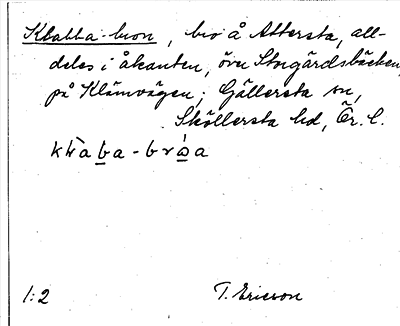 Klabba-bron, bro å Attersta, all-
deles i åkanten, över Storgårdsbäcken,
på Klämvägen; Gällersta sn,
Sköllersta hd, Ör. l.
1:2 T. Ericson